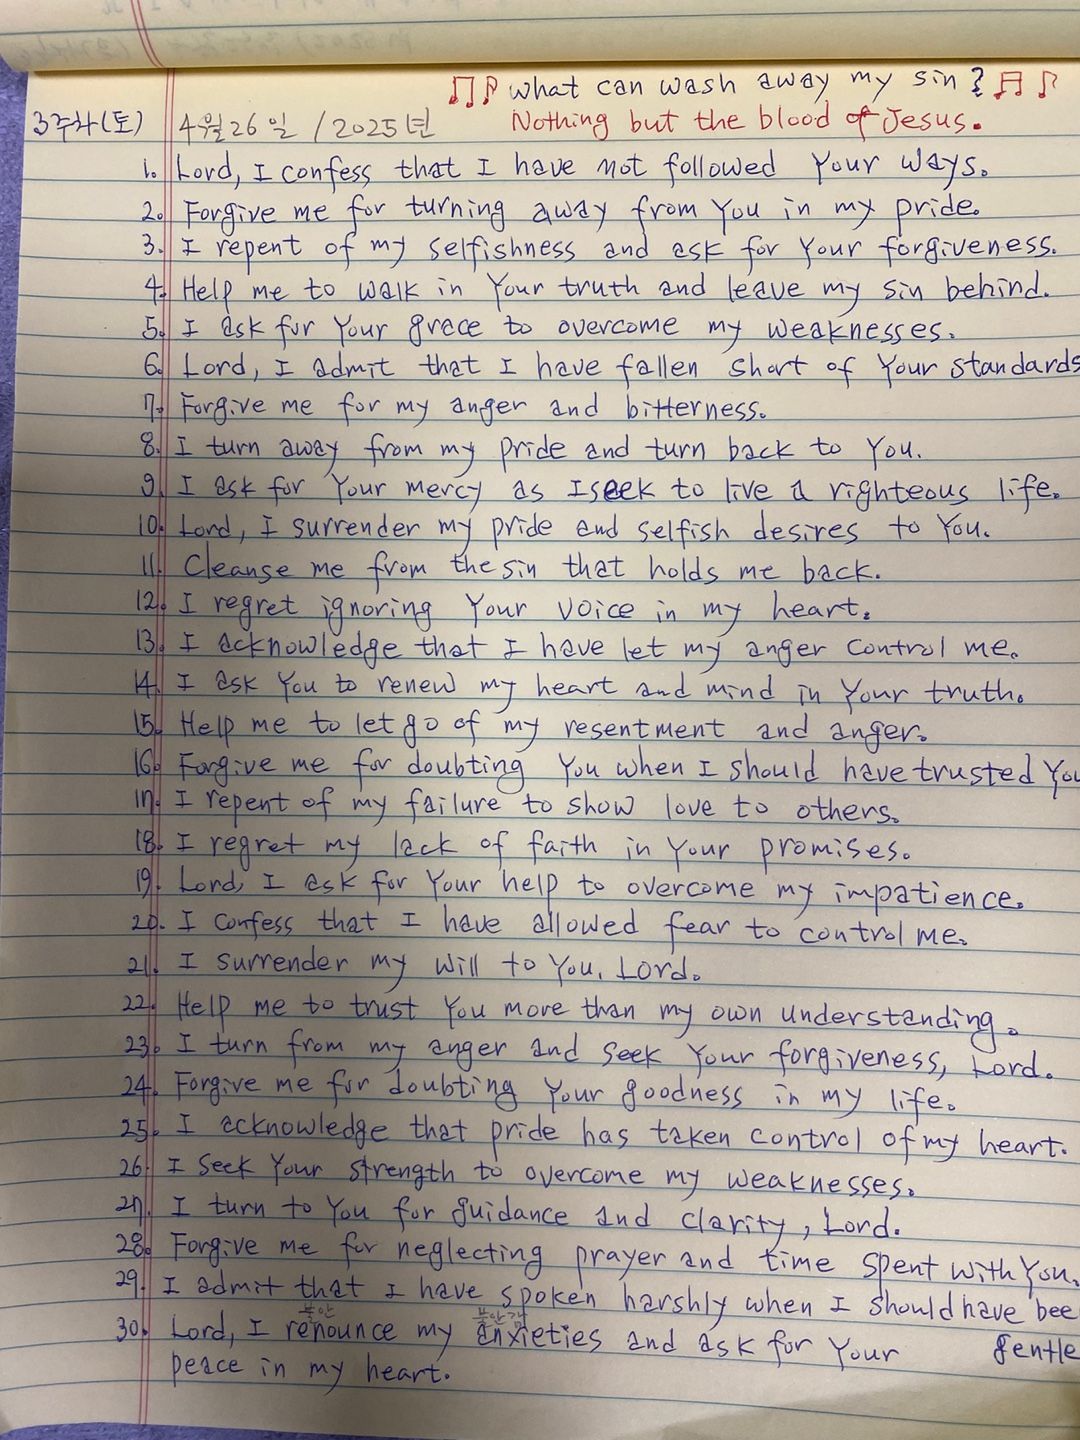 ♫♪ what can wash away my sin? ♫ ♪
3주차(토) 4월 26일 / 2025년 Nothing but the blood of Jesus.
1. Lord, I confess that I have not followed Your ways.
2. Forgive me for turning away from You in my pride.
3. I repent of my selfishness and ask for Your forgiveness.
4. Help me to walk in Your truth and leave my sin behind.
5. I ask for Your grace to overcome my weaknesses.
6. Lord, I admit that I have fallen short of Your standards
7. Forgive me for my anger and bitterness.
8. I turn away from my pride and turn back to You.
9. I ask for Your mercy as I seek to live a righteous life.
10. Lord, I surrender my pride and selfish desires to You.
11. Cleanse me from the sin that holds me back.
12. I regret ignoring Your voice in my heart.
13. I acknowledge that I have let my anger control me.
14. I ask You to renew my heart and mind in Your truth.
15. Help me to let go of my resentment and anger.
16. Forgive me for doubting You when I should have trusted You
17. I repent of my failure to show love to others.
18. I regret my lack of faith in Your promises.
19. Lord, I ask for Your help to overcome my impatience.
20. I confess that I have allowed fear to control me.
21. I surrender my will to You, Lord.
22. Help me to trust You more than my own understanding.
23. I turn from my anger and seek Your forgiveness, Lord.
24. Forgive me for doubting Your goodness in my life.
25. I acknowledge that pride has taken control of my heart.
26. I seek Your strength to overcome my weaknesses.
27. I turn to You for guidance and clarity, Lord.
28. Forgive me for neglecting prayer and time spent with You.
29. I admit that I have spoken harshly when I should have bee
불안 불안감
30. Lord, I renounce my anxieties and ask for Your gentle
peace in my heart.